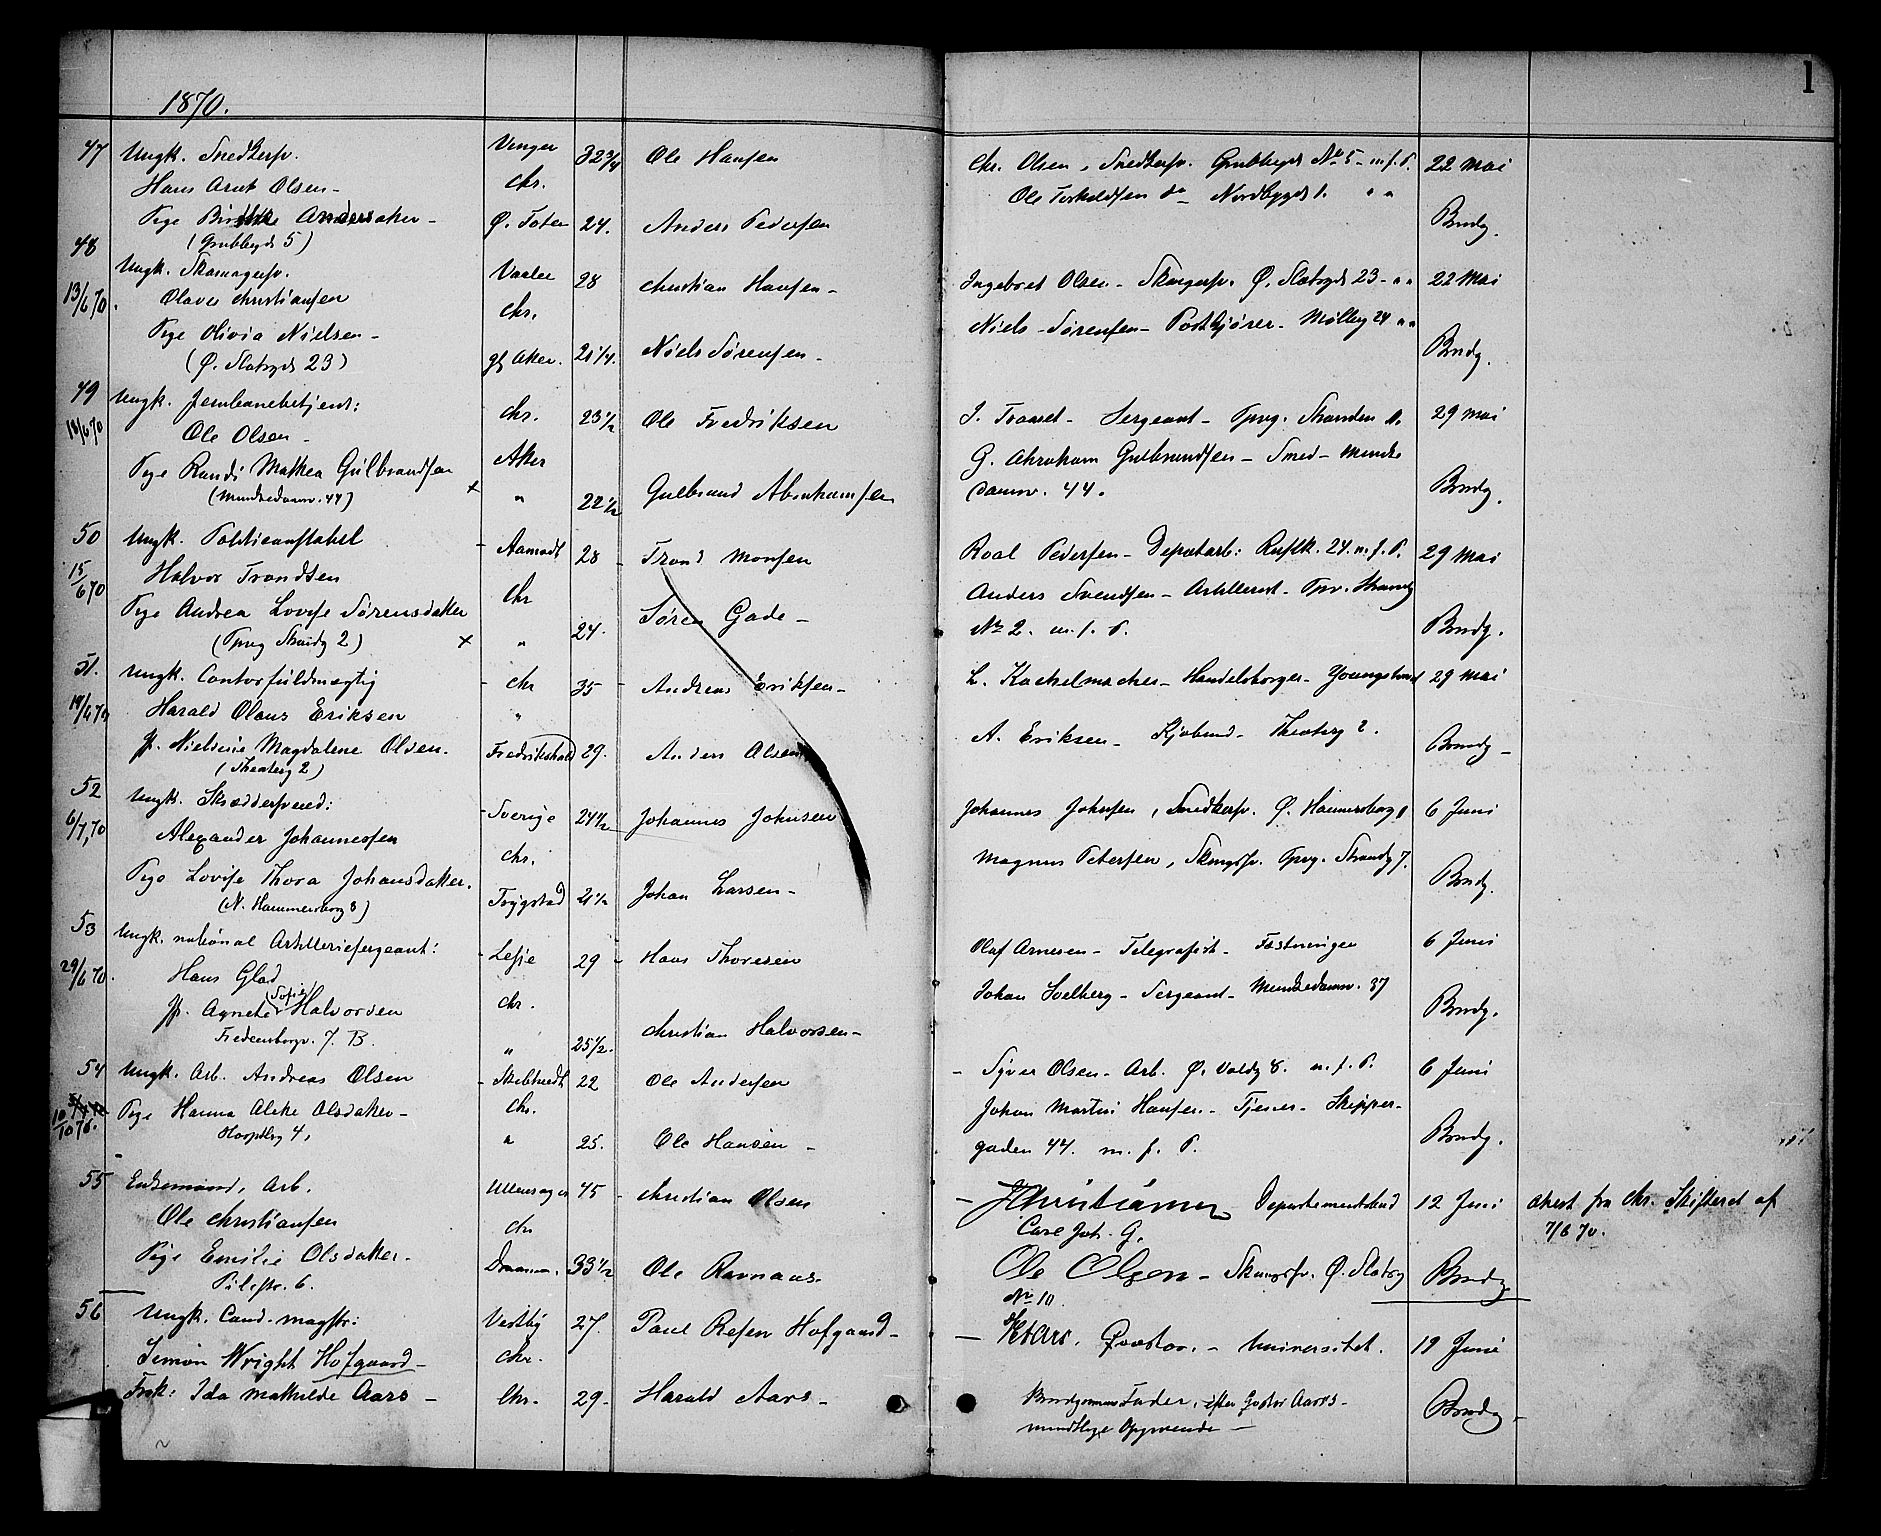 1870.
1
47 Ungk. Snedkersv. Vinger 32 3/4 Ole Hansen Chr. Olsen, Snedkersv. Grubbegd No 5 - m. f. P. 22 Mai
Hans Arnt Olsen - Chr. Ole Torkeldsen do Nordbygd 1. " "
Pige Andersdaker - Ø. Toten 24. Anders Pedersen Brudg.
(Grubbegd 5)
48 Ungk. Skomagersv. Vaaler 28 Christian Hansen - Ingebret Olsen - Skomgersv. Ø. Slotsgd 23 - " " 22 Mai
13/6 70. Olaves Christiansen Chr. Niels Sørensen - Postkjører - Møllerg 24 " "
Pige Olivia Nielsen - gl. Aker. 21 1/4. Niels Sørensen - Brudg.
(Ø. Slotsgd 23)
49 Ungk. Jernbanebetjent: Chr. 23 1/2 Ole Fredriksen Sergeant - Tpvg. Stranden 29 Mai
18/6 70 Ole Olsen - Aker G. Abraham Gulbrandsen - Smed - Munke
Pige Randi Mathea Gulbrandsen + " 22 1/2 Gulbrand Abrahamsen damv. 44. Brudg.
(Munkedamv. 44)
50 Ungk. Politieconstabel - Aamodt 28 - Trond Monsen Roal Pedersen - Departarb: 24. m. f. P. 29 Mai
15/6 70 Halvor Trondsen Chr Anders Svendsen - Artillerist - Tpv. Strandg
Pige Andrea Lovise Sørensdaker + " 24. Søren Gade - No 2. m. f. P. Brudg.
(Tpvg Strandg 2)
51. Ungk. Contorfuldmegtig - Chr 35 - Andreas Eriksen - L. Kachelmacher - Handelsborger - Youngstorvet 29 Mai
Harald Olaus Eriksen " A. Eriksen - Kjøbmd - Theaterg 2.
P. Nielsine Magdalene Olsen. Fredrikshald 29. Anders Olsen Brudg -
(Theaterg 2)
52 Ungk. Skrædersvend: - Sverige 24 1/2 Johannes Johnsen Johannes Johnsen, Snedkersv. Ø. Hammersborg 8 6 Juni
6/7, 70 Alexander Johannessen Chr. Magnus Petersen, Skomgsv. Tpvg. Strandg 7.
Pige Lovise Thora Johansdaker. Trygstad 21 1/2 Johan Larsen - Brudg.
(N. Hammersborg 8)
53 Ungk. national Artilleriesergeant: - Lesje 29 - Hans Thoresen Olaf Arnesen - Telegrafist - Fæstningen 6 Juni
29/6 70. Hans Glad Chr. Johan Solberg - Sergeant - Munkedamv. 37
P. Agnete (Sofie) Halvorsen " 25 1/2. Christian Halvorsen - Brudg.
Fredensborgv. 7. B.
54 Ungk. Arb. Andreas Olsen - 22 Ole Andersen - Syver Olsen - Arb. Ø. Voldg 8. m. f. P. 6 Juni
10/10 70. Pige Hanna Olsdaker - Chr. Johan Martin Hansen - Tjener - Skipper-
Hospitlsg 4, " 25. Ole Hansen - gaden 44. m. f. P. Brudg.
55 Enkemand, Arb. Ullensager 45 - Christian Olsen - Christiansen Departementsbud 12 Juni Attest fra Chr. Skifteret af
Ole Christiansen Chr Carl Joh. G. 7/6 70.
Pige Emilie Olsdaker. Drammen. 33 1/2 Ole Ravnaas. Ole Olsen - Skomgsv. Ø. Slotsg Brudg
Pilestr. 6. No 10.
56 Ungk. Cand. magstr: Vestby 27. Paul Resen Hofgaard - - Aars. Qvæstor. - Universitet. 19 Juni
Simon Wright Hofgaard - Chr.
Frøk: Ida Mathilde Aars - Chr. 29 - Harald Aars - Brudgommens Fader, efter Aars's Brudg -
mundtlige Opgivende -